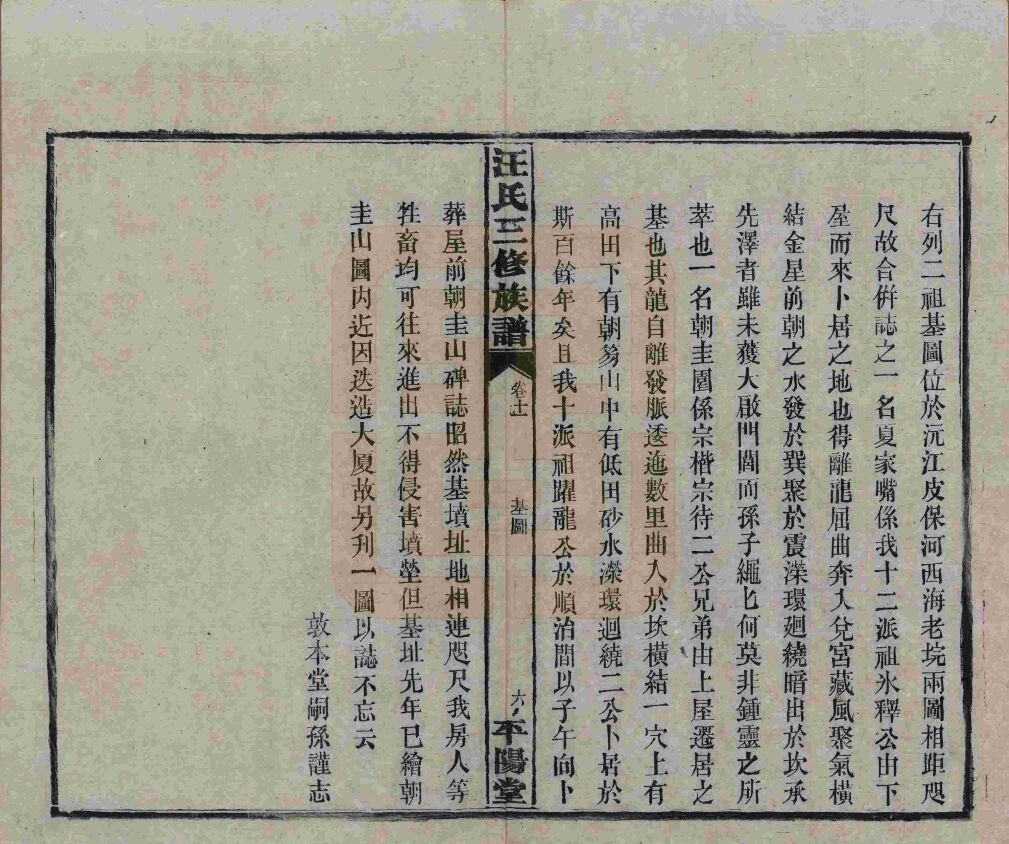 右列二祖基圖位於沅江皮保河西海老垸兩圖相距咫
尺故合併誌之一名夏家嘴係我十二派祖氷釋公由下
屋而來卜居之地也得離龍屈曲奔入兌宮藏風聚氣橫
結金星前朝之水發於巽聚於震濚環廻繞暗出於坎承
先澤者雖未獲大啟門閭而孫子繩匕何莫非鍾靈之所
萃也一名朝圭圍係宗楷宗待二公兄弟由上屋遷居之
基也其龍自離發脈逶迤數里曲入於坎橫結一穴上有
高田下有朝笏山中有低田砂水濚環迴繞二公卜居於
斯百餘年矣且我十派祖躍龍公於順治間以子午向卜
汪氏三修族譜
卷十一
基圖
六
平陽堂
葬屋前朝圭山碑誌昭然基墳址地相連咫尺我房人等
牲畜均可往來進出不得侵害墳塋但基址先年已繪朝
圭山圖内近因迭造大厦故另刋一圖以誌不忘云
敦本堂嗣孫謹志